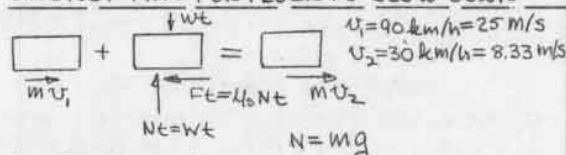 wt v₁=90 km/h=25 m/s
+ = v₂=30 km/h=8.33 m/s
mv₁ Ft=μₛNt mv₂
Nt=wt
N=mg